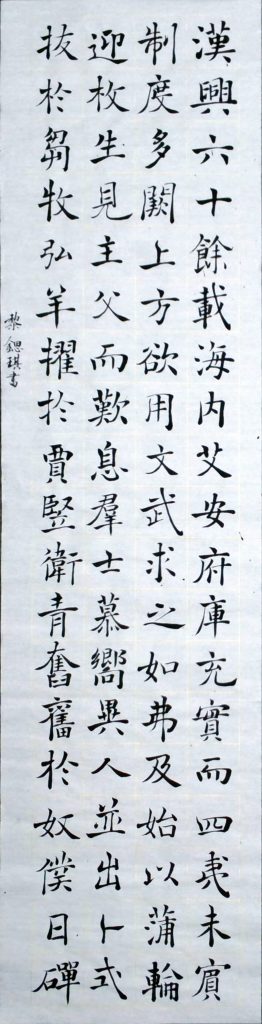 漢興六十餘載海内艾安府庫充實而四夷未賓
制度多闕上方欲用文武求之如弗及始以蒲輪
迎枚生見主父而歎息羣士慕嚮異人並出卜式
拔於芻牧弘羊擢於賈竪衛青奮於奴僕日磾
黎鍶琪書